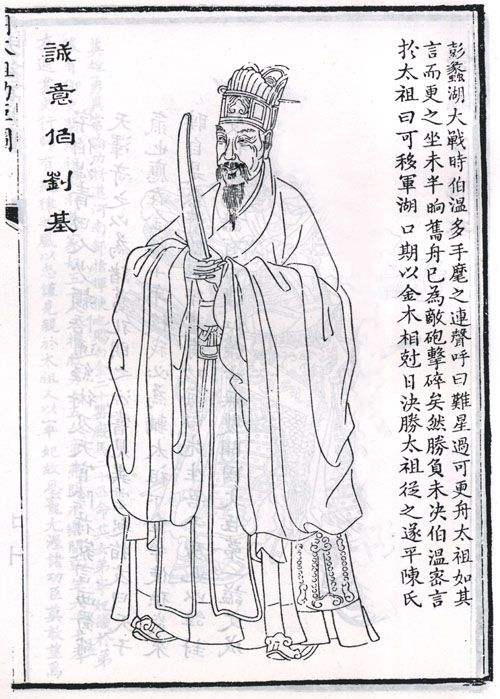 彭蠡湖大戰時伯溫多手麾之連聲呼曰難星過可更舟太祖如其
言而更之坐未半晌舊舟已為敵砲擊碎矣然勝負未決伯溫密言
於太祖曰可移軍湖口期以金木相尅日決勝太祖從之遂平陳氏
誠意伯劉基
太祖功臣圖